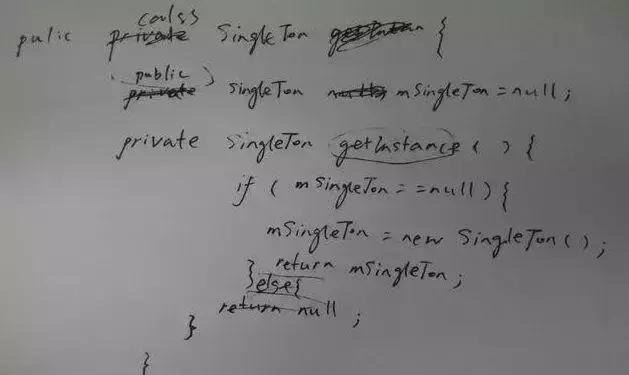 coulss
pulic private SingleTon getInstan {
public
private singleTon null mSingleTon = null;
private SingleTon getInstance ( ) {
if ( mSingleTon = = null ) {
mSingleTon = new SingleTon ( ) ;
return mSingleTon ;
} else {
return null ;
}
}